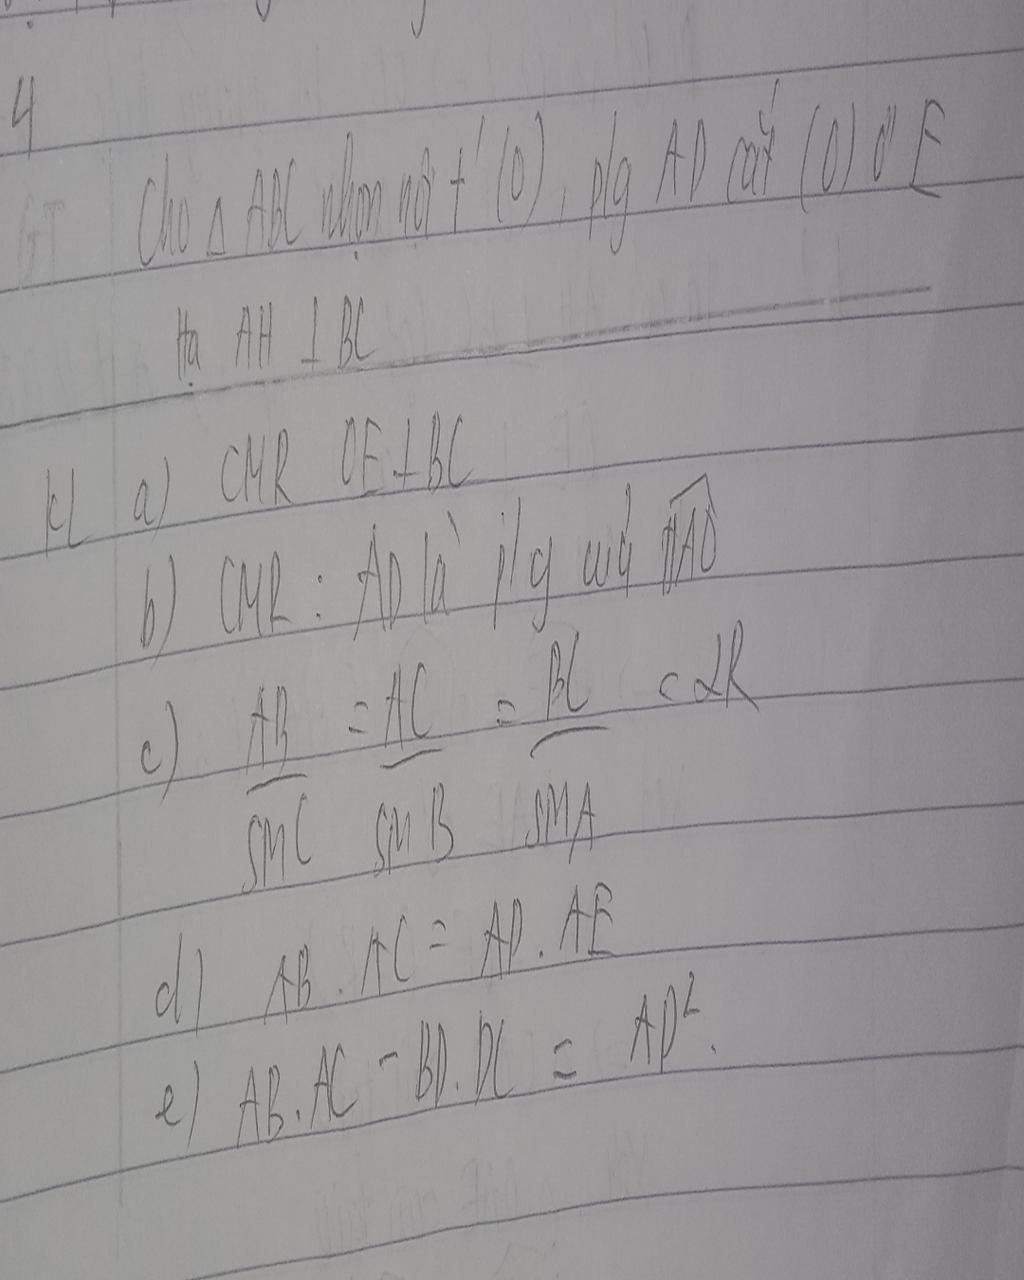 4
GT Cho △ ABC nhọn nội t' (O), p/g AD cắt (O) ở E
Hạ AH ⊥ BC
KL a) CMR OE ⊥ BC
b) CMR : AD là p/g của HAO
c) AB = AC = BC = 2R
sin C sin B sin A
d) AB . AC = AD . AE
e) AB . AC - BD . DC = AD².